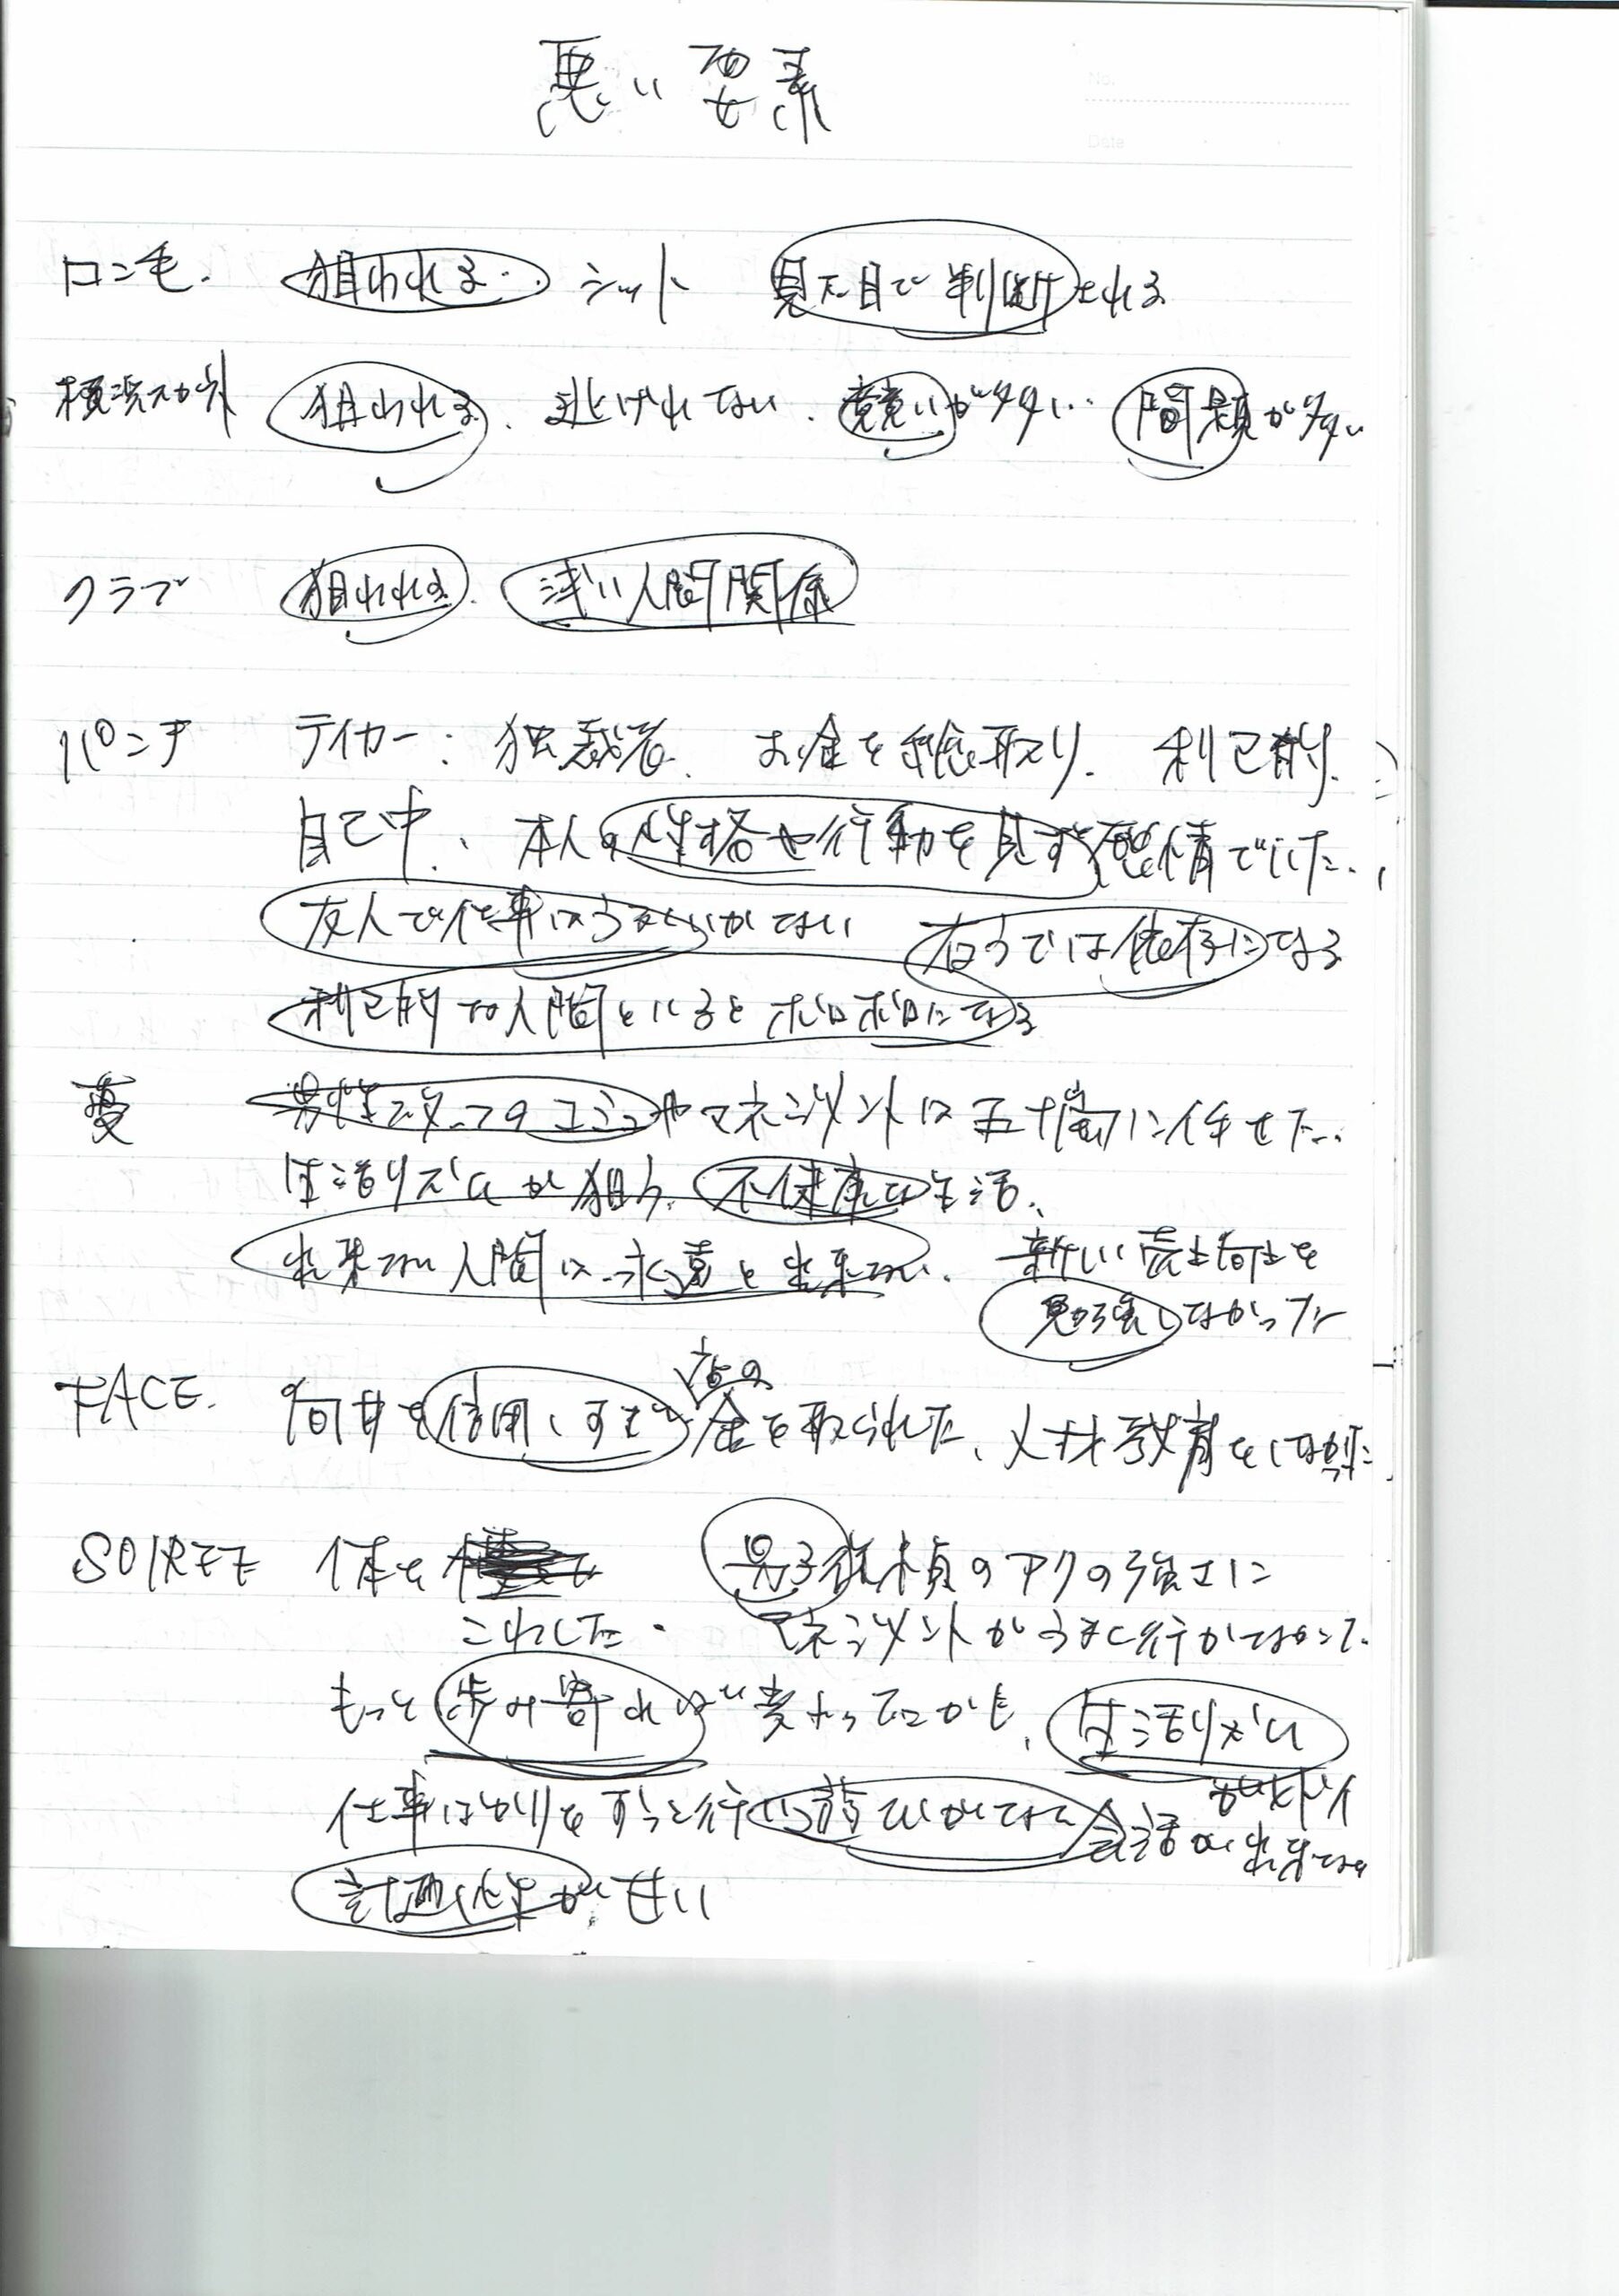 悪い要素
No.
Date
ロン毛. 狙われる. シット 見た目で判断される
横浜スカウト 狙われる、逃げれない、競いが多い.. 問題が多い
クラブ 狙われる. 浅い人間関係
パンチ テイカー: 独裁者. お金を総取り. 利己的.
自己中、本人の性格や行動を見ず感情でいた..
友人で仕事はうまくいかない 右うでは依存になる
利己的な人間といるとボロボロになる
夢 男性スタッフのコミュやマネジメントは五十嵐に任せた..
生活リズムが狙う、不健康な生活、
出来ない人間は永遠と出来ない. 新しい方向性を
勉強しなかった
FACE. 何甘を信用しすぎ 店の 金を取られた、人材教育をしなかった
SOIREE 体を 男子 のアクの強さに
こわした. マネジメントがうまく行かなかった.
もっと歩み寄れば変わってたかも、生活リズム
仕事ばかりをずっと行い遊びがなく 会話が出来ない
計画性が甘い